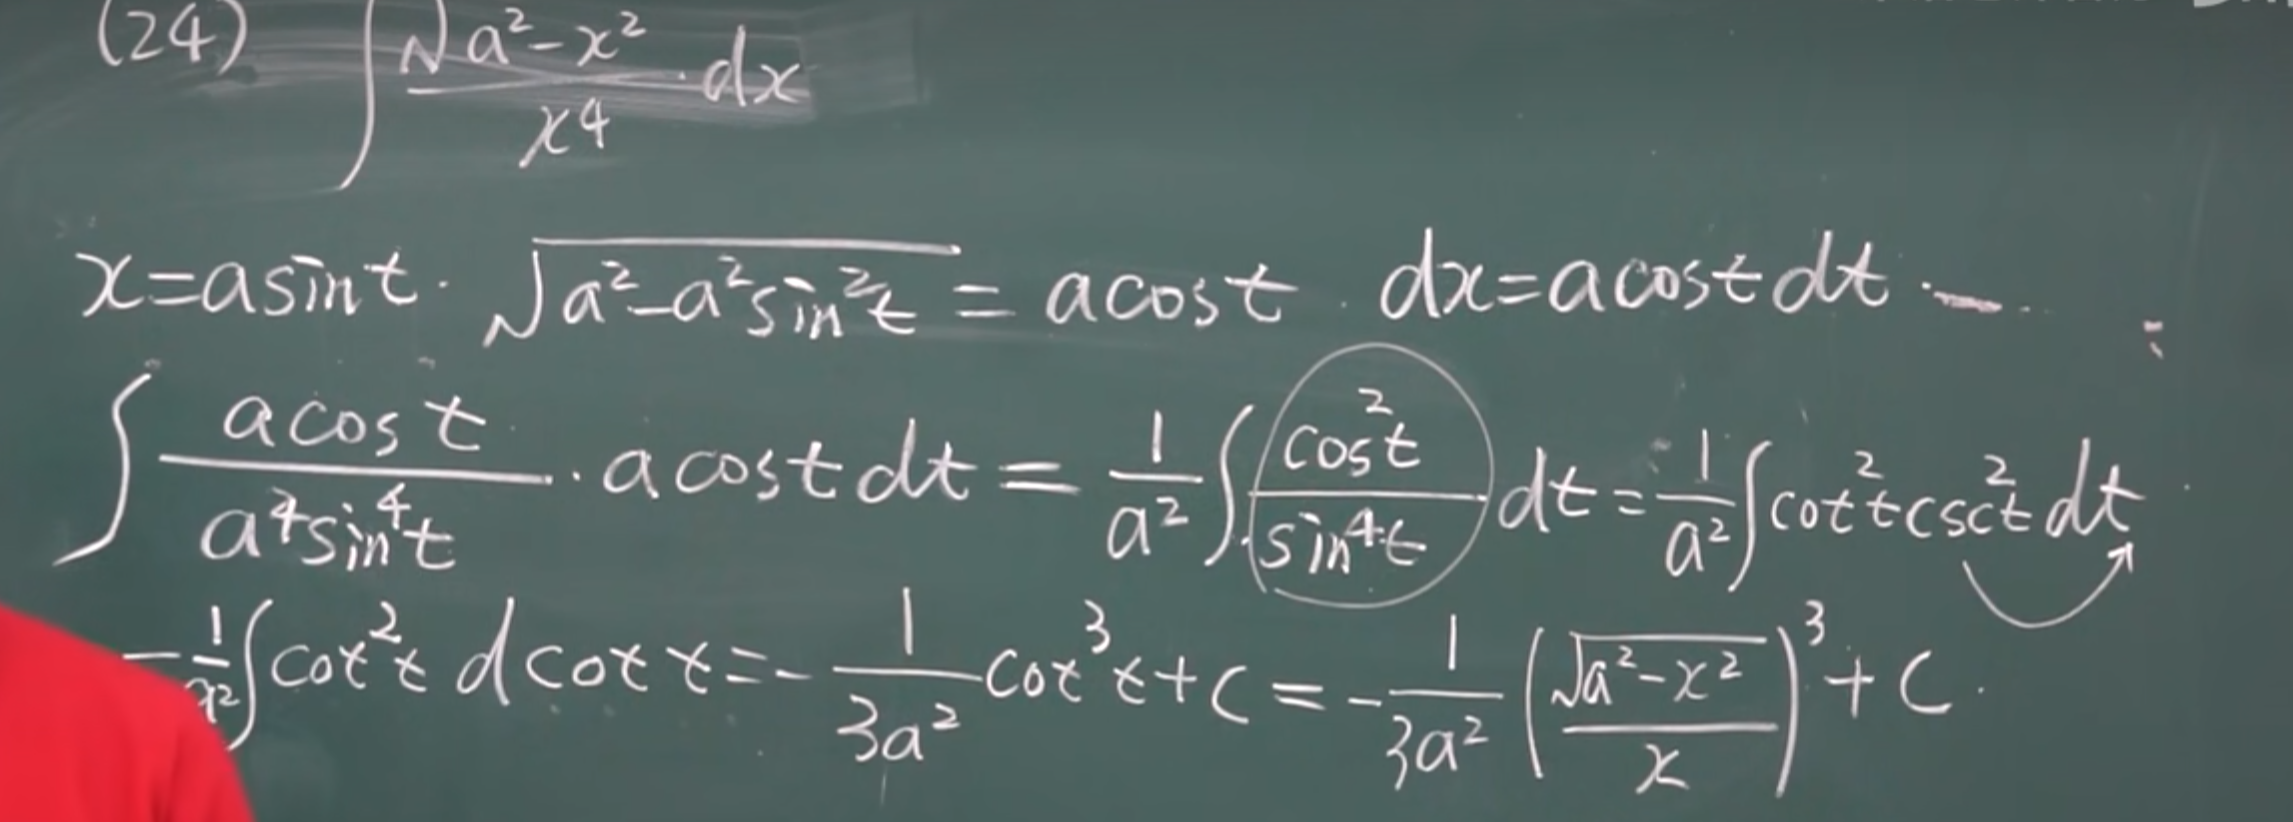 (24) ∫ √(a²-x²)/x⁴ · dx
x=asint. √(a²-a²sin²t) = acost. dx=acostdt.
∫ acost/(a⁴sin⁴t) · acostdt = 1/a² ∫ cos²t/sin⁴t dt = 1/a² ∫cot²tcsc²tdt
-1/a² ∫cot²t dcott = -1/(3a²) cot³t+C = -1/(3a²) (√(a²-x²)/x)³+C.